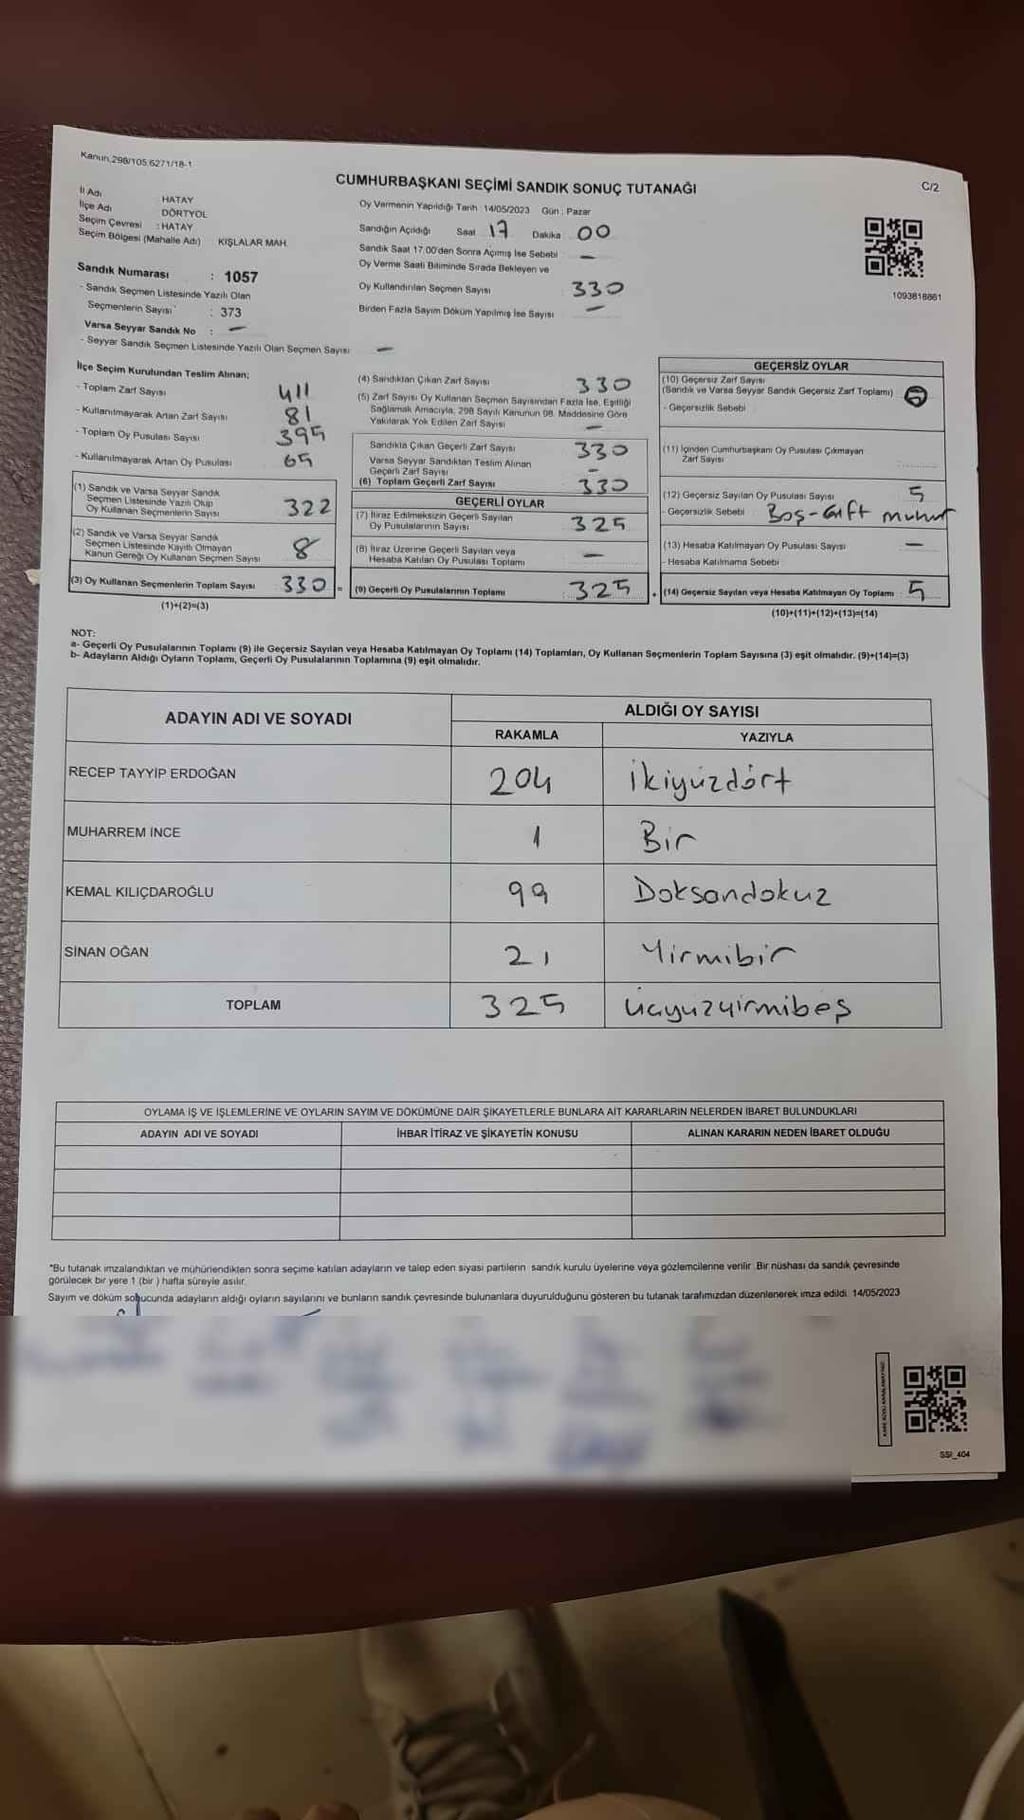 Kanun.298/105,6271/18-1
CUMHURBAŞKANI SEÇİMİ SANDIK SONUÇ TUTANAĞI
C/2
İl Adı HATAY
İlçe Adı DÖRTYOL
Seçim Çevresi : HATAY
Seçim Bölgesi (Mahalle Adı) KIŞLALAR MAH.
Sandık Numarası : 1057
- Sandık Seçmen Listesinde Yazılı Olan
Seçmenlerin Sayısı : 373
Varsa Seyyar Sandık No : —
- Seyyar Sandık Seçmen Listesinde Yazılı Olan Seçmen Sayısı —
Oy Vermenin Yapıldığı Tarih 14/05/2023 Gün : Pazar
Sandığın Açıldığı Saat 17 Dakika 00
Sandık Saat 17.00'den Sonra Açımış İse Sebebi —
Oy Verme Saati Bitiminde Sırada Bekleyen ve
Oy Kullandırılan Seçmen Sayısı 330
Birden Fazla Sayım Döküm Yapılmış İse Sayısı —
1093818861
İlçe Seçim Kurulundan Teslim Alınan;
- Toplam Zarf Sayısı 411
- Kullanılmayarak Artan Zarf Sayısı 81
- Toplam Oy Pusulası Sayısı 395
- Kullanılmayarak Artan Oy Pusulası 65
(1) Sandık ve Varsa Seyyar Sandık
Seçmen Listesinde Yazılı Olup
Oy Kullanan Seçmenlerin Sayısı 322
(2) Sandık ve Varsa Seyyar Sandık
Seçmen Listesinde Kayıtlı Olmayan
Kanun Gereği Oy Kullanan Seçmen Sayısı 8
(3) Oy Kullanan Seçmenlerin Toplam Sayısı 330 =
(1)+(2)=(3)
(4) Sandıktan Çıkan Zarf Sayısı 330
(5) Zarf Sayısı Oy Kullanan Seçmen Sayısından Fazla İse, Eşitliği
Sağlamak Amacıyla, 298 Sayılı Kanunun 98. Maddesine Göre
Yakılarak Yok Edilen Zarf Sayısı —
Sandıkta Çıkan Geçerli Zarf Sayısı 330
Varsa Seyyar Sandıktan Teslim Alınan
Geçerli Zarf Sayısı —
(6) Toplam Geçerli Zarf Sayısı 330
GEÇERLİ OYLAR
(7) İtiraz Edilmeksizin Geçerli Sayılan
Oy Pusulalarının Sayısı 325
(8) İtiraz Üzerine Geçerli Sayılan veya
Hesaba Katılan Oy Pusulası Toplamı —
(9) Geçerli Oy Pusulalarının Toplamı 325
GEÇERSİZ OYLAR
(10) Geçersiz Zarf Sayısı
(Sandık ve Varsa Seyyar Sandık Geçersiz Zarf Toplamı)
- Geçersizlik Sebebi
(11) İçinden Cumhurbaşkanı Oy Pusulası Çıkmayan
Zarf Sayısı
(12) Geçersiz Sayılan Oy Pusulası Sayısı 5
- Geçersizlik Sebebi Boş-Çift mühür
(13) Hesaba Katılmayan Oy Pusulası Sayısı —
- Hesaba Katılmama Sebebi
(14) Geçersiz Sayılan veya Hesaba Katılmayan Oy Toplamı 5
(10)+(11)+(12)+(13)=(14)
NOT:
a- Geçerli Oy Pusulalarının Toplamı (9) ile Geçersiz Sayılan veya Hesaba Katılmayan Oy Toplamı (14) Toplamları, Oy Kullanan Seçmenlerin Toplam Sayısına (3) eşit olmalıdır. (9)+(14)=(3)
b- Adayların Aldığı Oyların Toplamı, Geçerli Oy Pusulalarının Toplamına (9) eşit olmalıdır.
ADAYIN ADI VE SOYADI
ALDIĞI OY SAYISI
RAKAMLA YAZIYLA
RECEP TAYYİP ERDOĞAN 204 İkiyüzdört
MUHARREM İNCE 1 Bir
KEMAL KILIÇDAROĞLU 99 Doksandokuz
SİNAN OĞAN 21 Yirmibir
TOPLAM 325 üçyüzyirmibeş
OYLAMA İŞ VE İŞLEMLERİNE VE OYLARIN SAYIM VE DÖKÜMÜNE DAİR ŞİKAYETLERLE BUNLARA AİT KARARLARIN NELERDEN İBARET BULUNDUKLARI
ADAYIN ADI VE SOYADI İHBAR İTİRAZ VE ŞİKAYETİN KONUSU ALINAN KARARIN NEDEN İBARET OLDUĞU
*Bu tutanak imzalandıktan ve mühürlendikten sonra seçime katılan adayların ve talep eden siyasi partilerin sandık kurulu üyelerine veya gözlemcilerine verilir. Bir nüshası da sandık çevresinde
görülecek bir yere 1 (bir ) hafta süreyle asılır.
Sayım ve döküm sonucunda adayların aldığı oyların sayılarını ve bunların sandık çevresinde bulunanlara duyurulduğunu gösteren bu tutanak tarafımızdan düzenlenerek imza edildi. 14/05/2023
SSI_404